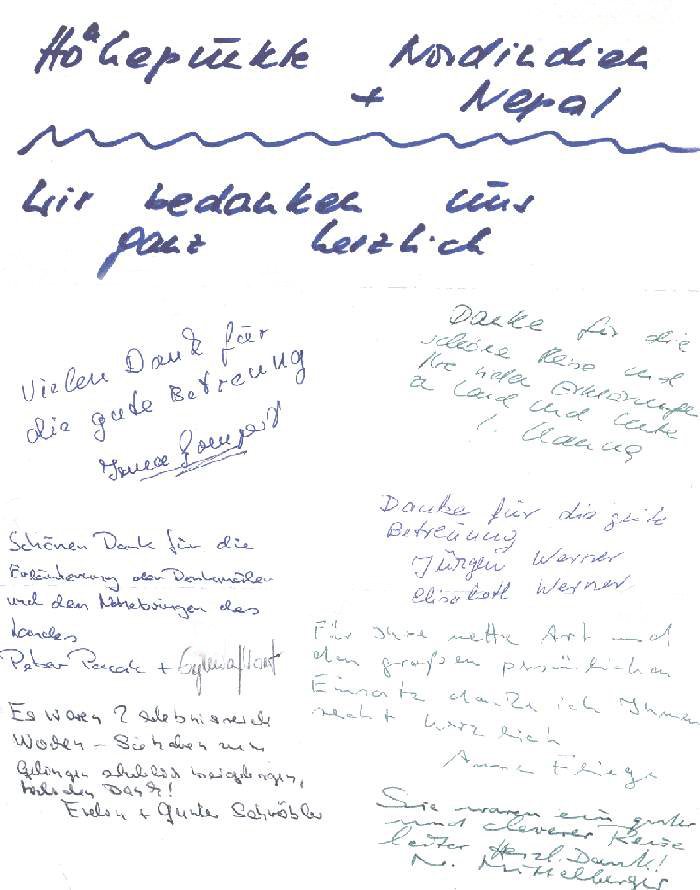 Höhepunkte Nordindien
+ Nepal
Wir bedanken uns
ganz herzlich
Vielen Dank für
die gute Betreuung
Danke für die
schöne Reise und
Erklärungen
Land und Leute
Schönen Dank für die
Erläuterung der Denkmäler
und den
Landes
Peter +
Danke für die gute
Betreuung
Jürgen Werner
Elisabeth Werner
Für Ihre nette Art und
den großen persönlichen
Einsatz danke ich Ihnen
recht herzlich
Anna
Es waren 2 erlebnisreiche
Wochen – Sie haben zum
Gelingen
Dank!
+ Gunter
Sie waren ein guter
und cleverer Reise
leiter Herzl. Dank!